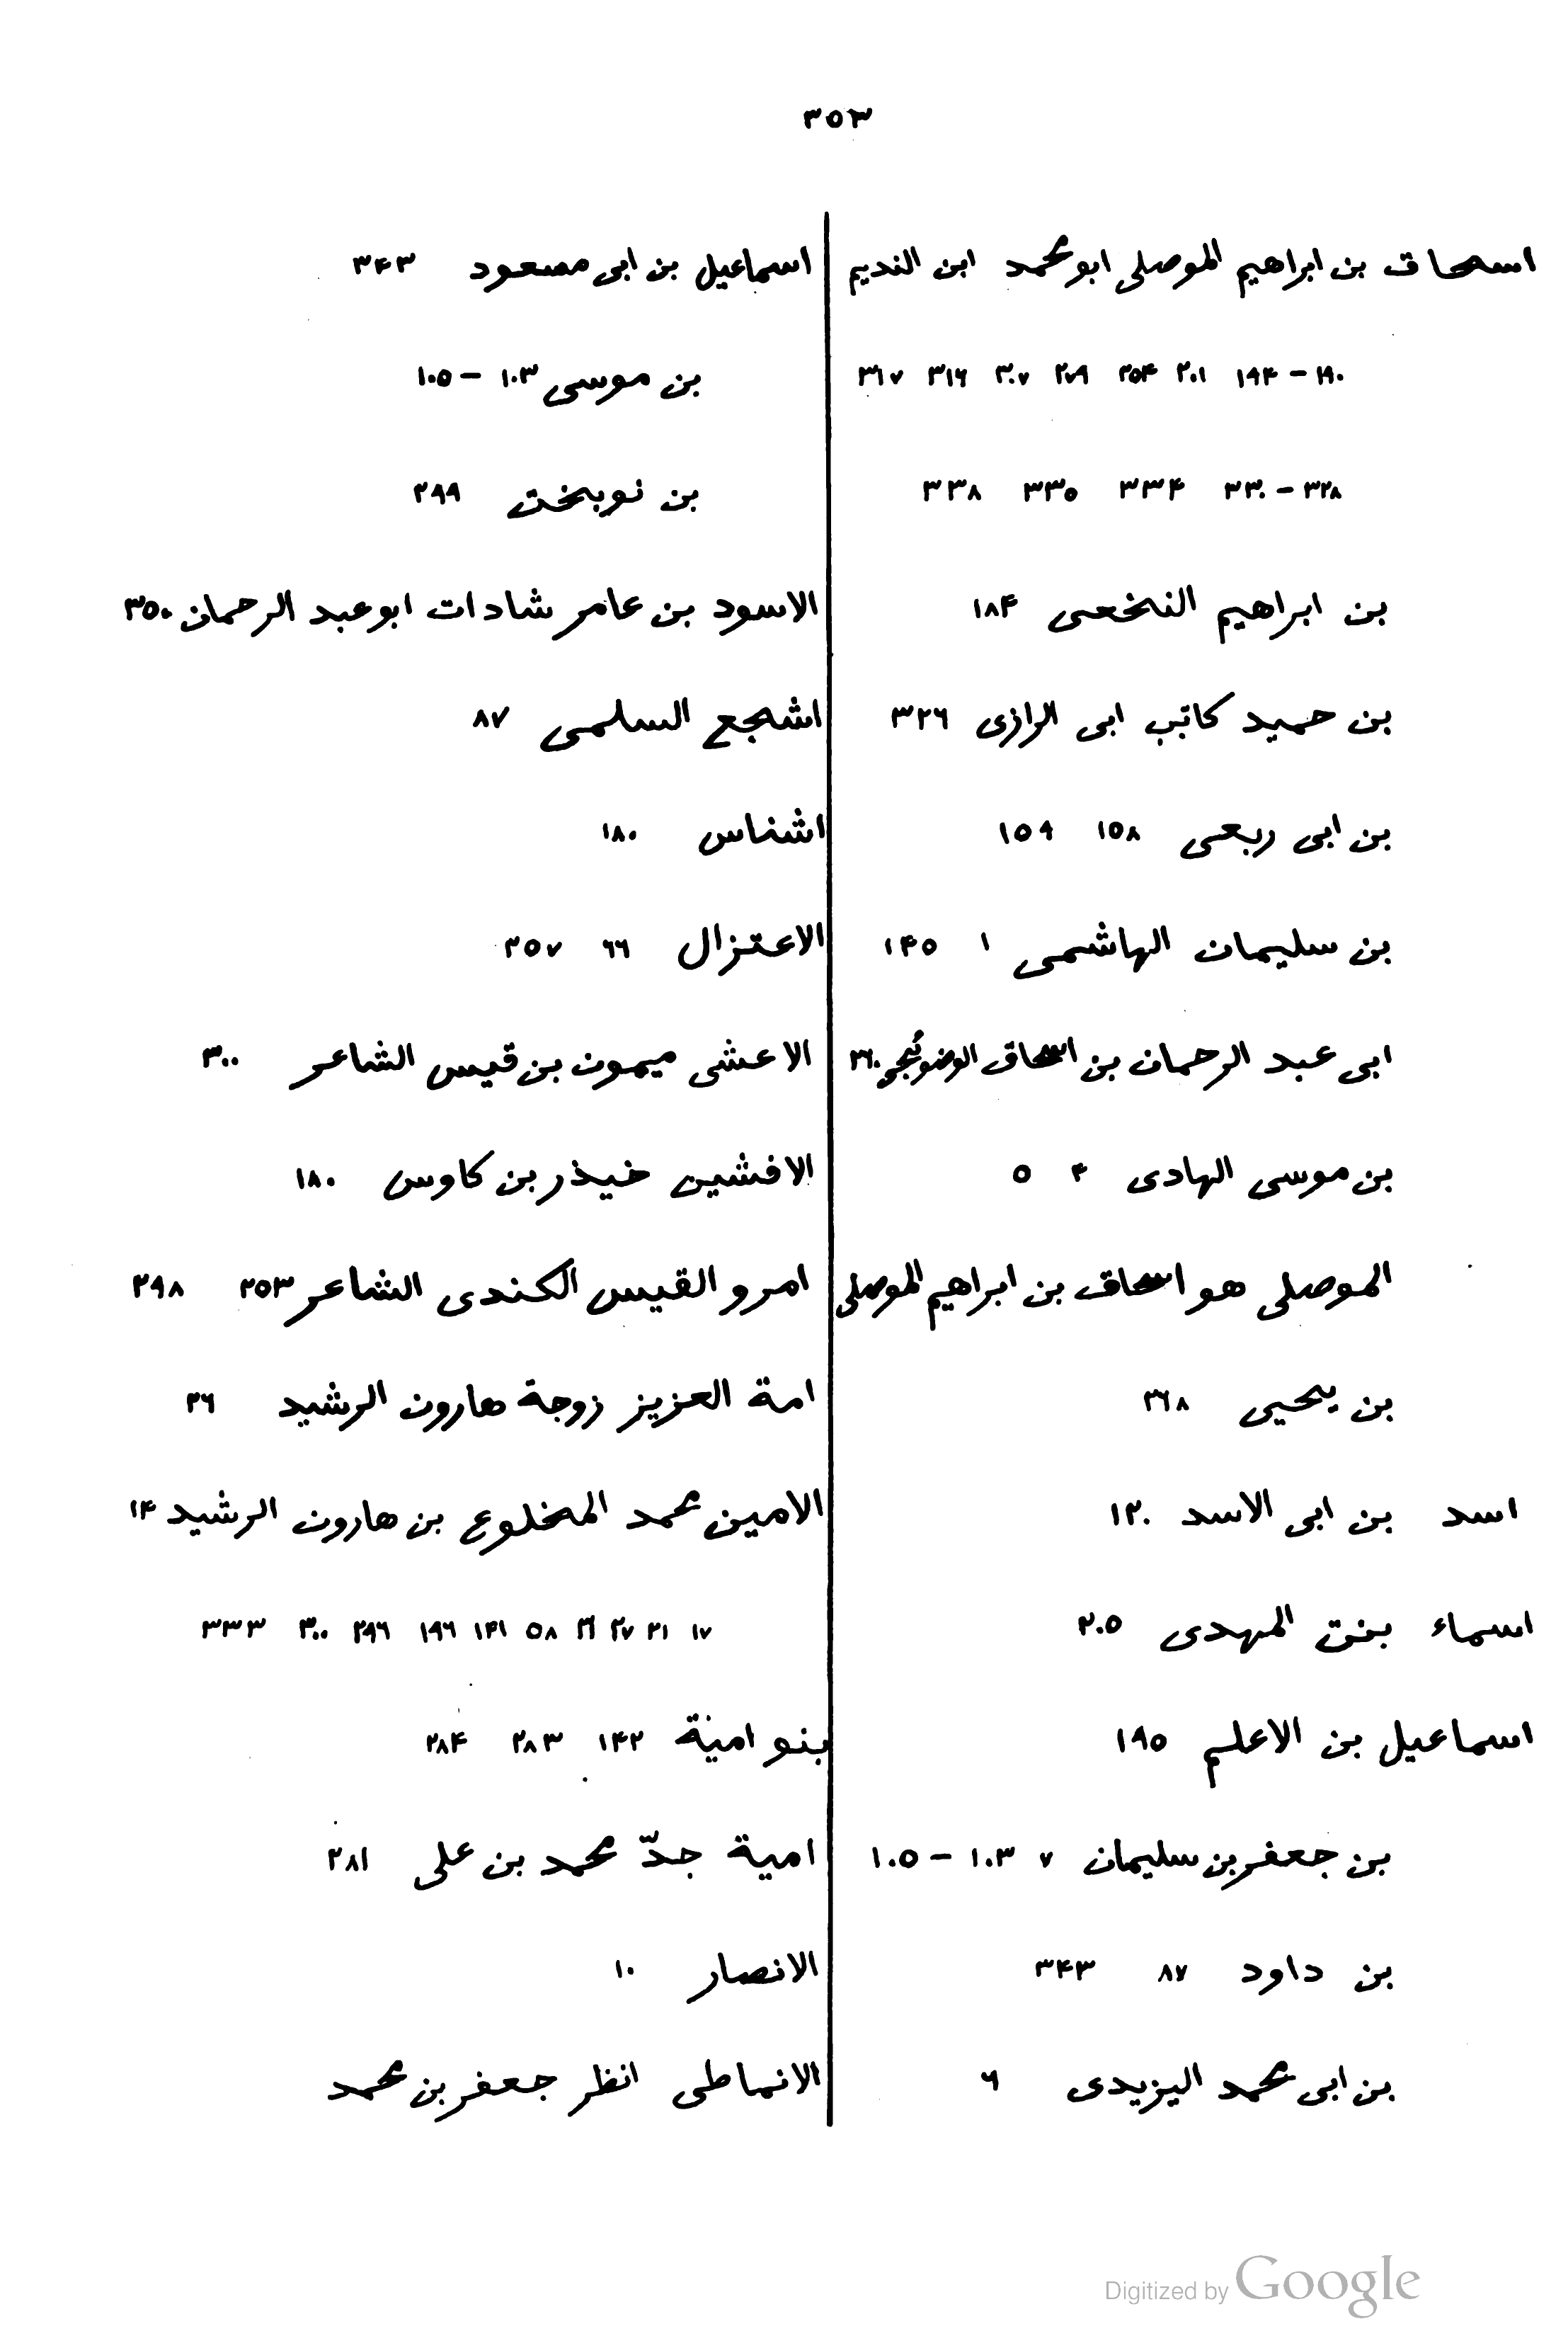 ٣٥٣
اسحاق بن ابراهيم الموصلى ابو محمد ابن النديم
١٩٠ – ١٩۴ ٢٠١ ٢٥۴ ٢٧٩ ٣٠٧ ٣١٦ ٣١٧
٣٢٨ – ٣٣٠ ٣٣۴ ٣٣٥ ٣٣٨
بن ابراهيم النخعى ١٨۴
بن حميد كاتب ابى الرازى ٣٢٦
بن ابى ربعى ١٥٨ ١٥٩
بن سليمان الهاشمى ١ ١۴٥
ابى عبد الرحمان بن اسحاق
بن موسى الهادى ۴ ٥
الموصلى هو اسحاق بن ابراهيم الموصلى
بن يحيى
اسد بن ابى الاسد ١٢٠
اسماء بنت المهدى ٢٠٥
اسماعيل بن الاعلم ١٩٥
بن جعفر بن سليمان ٧ ١٠٣ – ١٠٥
بن داود ٨٧ ٣۴٣
بن ابى محمد اليزيدى ٦
اسماعيل بن ابى مسعود ٣۴٣
بن موسى ١٠٣ – ١٠٥
بن نوبخت ٢٩٩
الاسود بن عامر شادات ابو عبد الرحمان ٣٥٠
اشجع السلمى ٨٧
اشناس ١٨٠
الاعتزال ٦٦ ٢٥٧
الاعشى ميمون بن قيس الشاعر ٣٠٠
الافشين خيذر بن كاوس ١٨٠
امرو القيس الكندى الشاعر ٢٥٣ ٢٩٨
امة العزيز زوجة هارون الرشيد ٢٦
الامين محمد المخلوع بن هارون الرشيد ١۴
١٧ ٢١ ٢٧ ٥٨ ١۴١ ١٩٦ ٢٩٦ ٣٠٠ ٣٣٣
بنو امية ١۴٢ ٢٨٣ ٢٨۴
امية جدّ محمد بن على ٢٨١
الانصار ١٠
الانماطى انظر جعفر بن محمد
Digitized by Google